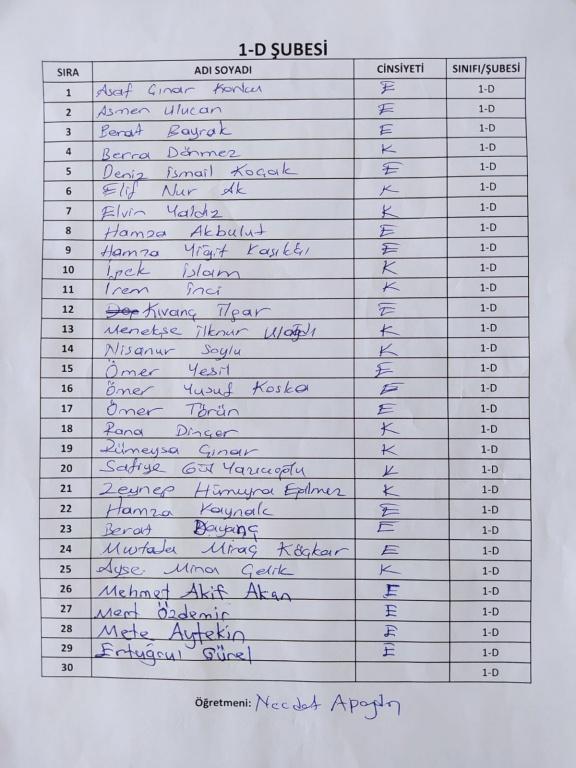 1-D ŞUBESİ
SIRA ADI SOYADI CİNSİYETİ SINIFI/ŞUBESİ
1 Asaf Çınar Korku E 1-D
2 Asmen Ulucan E 1-D
3 Berat Bayrak E 1-D
4 Berra Dönmez K 1-D
5 Deniz İsmail Koçak E 1-D
6 Elif Nur Ak K 1-D
7 Elvin Yaldız K 1-D
8 Hamza Akbulut E 1-D
9 Hamza Yiğit Kaşıkğı E 1-D
10 İpek İslam K 1-D
11 İrem İnci K 1-D
12 Kıvanç İlgar E 1-D
13 Menekşe İlknur K 1-D
14 Nisanur Soylu K 1-D
15 Ömer Yesil E 1-D
16 Ömer Yusuf Koska E 1-D
17 Ömer Törün E 1-D
18 Rana Dinçer K 1-D
19 Rümeysa Çınar K 1-D
20 Safiye Gül Yazıcıoğlu K 1-D
21 Zeynep Hümeyra Epilmez K 1-D
22 Hamza Kaynak E 1-D
23 Berat Dayanç E 1-D
24 Mustafa Miraç Köçkar E 1-D
25 Ayşe Mina Çelik K 1-D
26 Mehmet Akif Akan E 1-D
27 Mert Özdemir E 1-D
28 Mete Aytekin E 1-D
29 Ertuğrul Gürel E 1-D
30 1-D
Öğretmeni: Necdet